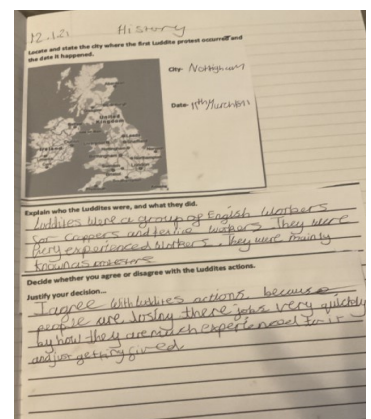 12.12. History
Locate and state the city where the first Luddite protest occurred and
the date it happened.
City- Nottigham
Date- 11th March 1811
United
Kingdom
Explain who the Luddites were, and what they did.
Luddites were a group of English workers
for croppers and textile workers. They were
very experienced workers. They were mainly
known as
Decide whether you agree or disagree with the Luddites actions.
Justify your decision...
I agree with luddies actions, because
people are losing there jobs very quickly
by how they are much experienced for it
and just getting fired